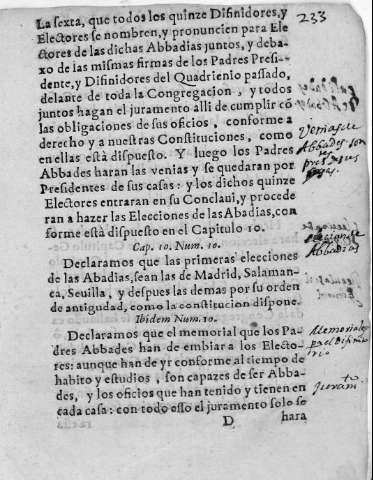 233
La sexta, que todos los quinze Difinidores, y
Electores se nombren, y pronuncien para Ele
ctores de las dichas Abbadias juntos, y deba-
xo de las mismas firmas de los Padres Presi-
dente, y Difinidores del Quadrienio passado,
delante de toda la Congregacion, y todos
juntos hagan el juramento alli de cumplir cō
las obligaciones de sus oficios, conforme a
derecho y a nuestras Constituciones, como
en ellas està dispuesto. Y luego los Padres
Abbades haran las venias y se quedaran por
Presidentes de sus casas: y los dichos quinze
Electores entraran en su Conclaui, y procede
ran a hazer las Elecciones de las Abadias, con
forme està dispuesto en el Capitulo 10.
Cap. 10. Num. 10.
Declaramos que las primeras elecciones
de las Abadias, sean las de Madrid, Salaman-
ca, Seuilla, y despues las demas por su orden
de antigudad, como la constitucion dispone.
Ibidem Num. 10.
Declaramos que el memorial que los Pa-
dres Abbades han de embiar a los Electo-
res: aunque han de yr conforme al tiempo de
habito y estudios, son capazes de ser Abba-
des, y los oficios que han tenido y tienen en
cada casa: con todo esso el juramento solo se
D hara
Abbades son
Abbadias
Memoriales
Juram.to